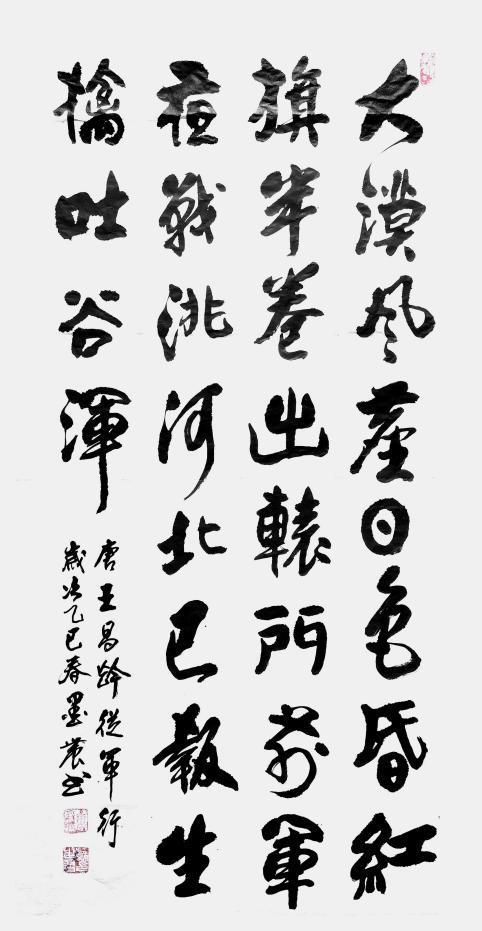 大漠風塵日色昏紅
旗半卷出轅門前軍
夜戰洮河北已報生
擒吐谷渾
唐王昌齡從軍行
歲次乙巳春墨農書